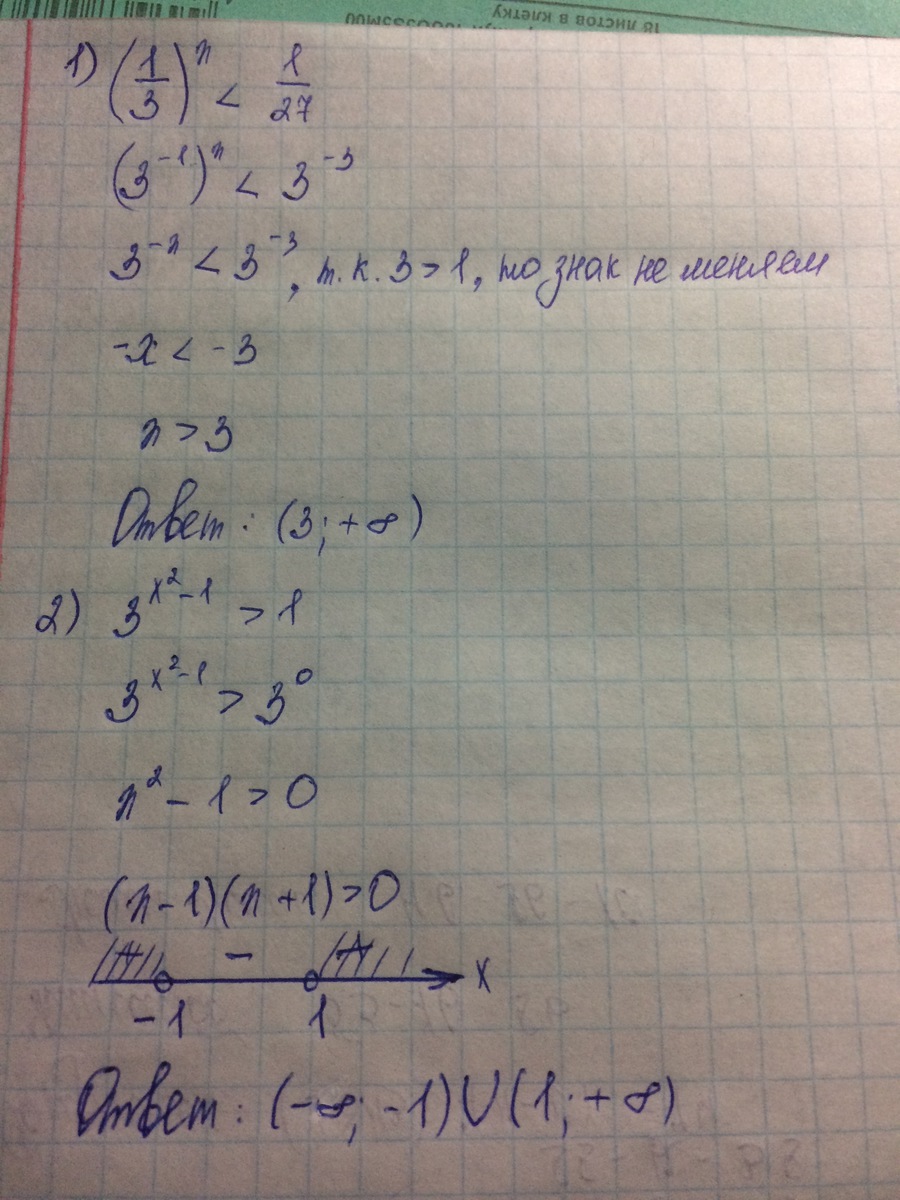 18 листов в клетку
1) (1/3)^x < 1/27
(3^-1)^x < 3^-3
3^-x < 3^-3, т.к. 3 > 1, то знак не меняем
-x < -3
x > 3
Ответ: (3; +∞)
2) 3^x²-1 > 1
3^x²-1 > 3^0
x² - 1 > 0
(x-1)(x+1)>0
+ - + x
-1 1
Ответ: (-∞; -1)∪(1; +∞)